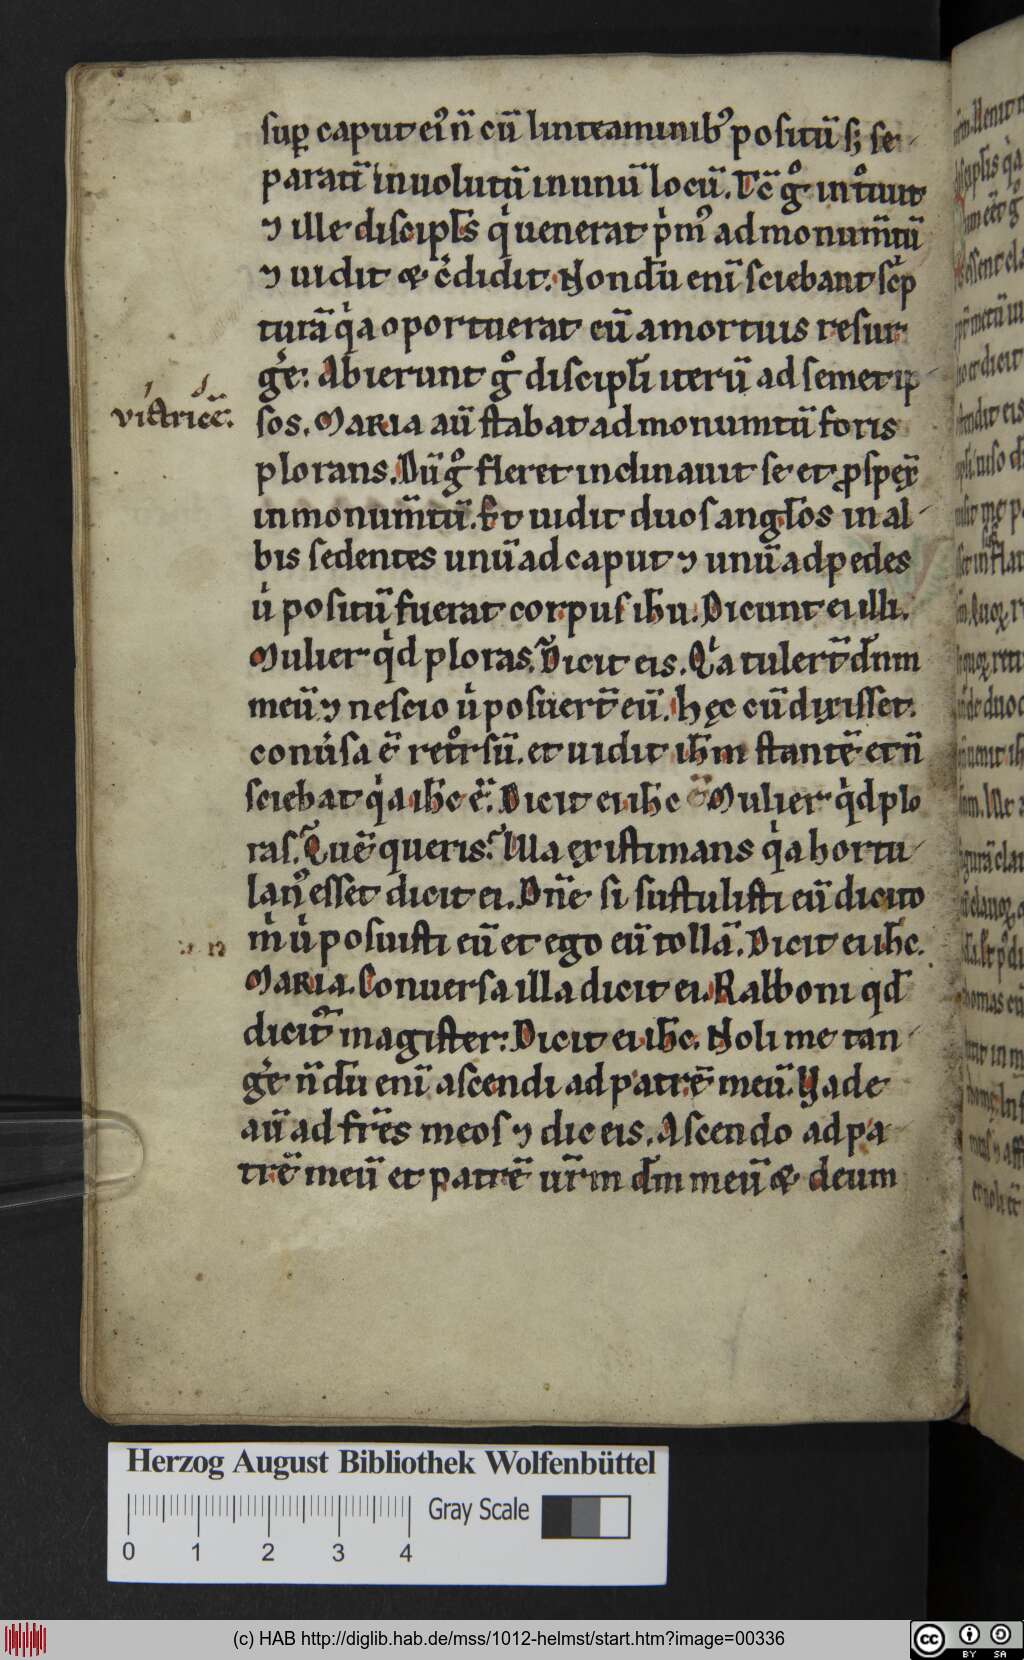 sup caput ei' n̄ cū linteaminib' positū s; se-
paratī inuolutū in unū locū. Tc̄ gͦ intͦiuit
⁊ ille discipl's qͥ uenerat pͥm' ad monum̄tū
⁊ uidit & c̓didit. Nondū enī sciebant sc̓p
turā qͥa oportuerat eū a mortuis resur
ge̓. Abierunt gͦ discipl'i iterū ad semetip-
victricē. sos. MARIA aū stabat ad monumtū foris
plorans. Dū gͦ fleret inclinauit se et ꝓspex̄
in monum̄tū. Et uidit duos angl'os in al-
bis sedentes unū ad caput ⁊ unū ad pedes
u̓ positū fuerat corpus ih̄u. Dicunt ei illi.
Mulier qͥd ploras. Dicit eis. Qͥa tulert̄ dn̄m
meū ⁊ nescio u̓ posuert̄ eū. hęc cū dixisset.
conu̓sa ē retͦrsū. et uidit ih̄m stantē et n̄
sciebat qͥa ih̄c ē. Dicit ei ih̄c Mulier qͥd plo
ras. Quē queris. Illa existimans qͥa hortu-
lan' esset dicit ei. Dn̄e si sustulisti eū dicito
m̓ u̓ posuisti eū et ego eū tollā. Dicit ei ih̄c.
MARIA. Conuersa illa dicit ei. Rabboni qd̄
dicit̓ magister. Dicit ei ih̄c. Noli me tan-
ge̓ n̄dū enī ascendi ad patrē meū. Vade
aū ad fr̄es meos ⁊ dic eis. Ascendo ad pa-
trē meū et patrē ur̄m dm̄ meū & deum
Herzog August Bibliothek Wolfenbüttel
Gray Scale
0 1 2 3 4
(c) HAB http://diglib.hab.de/mss/1012-helmst/start.htm?image=00336
cc BY SA